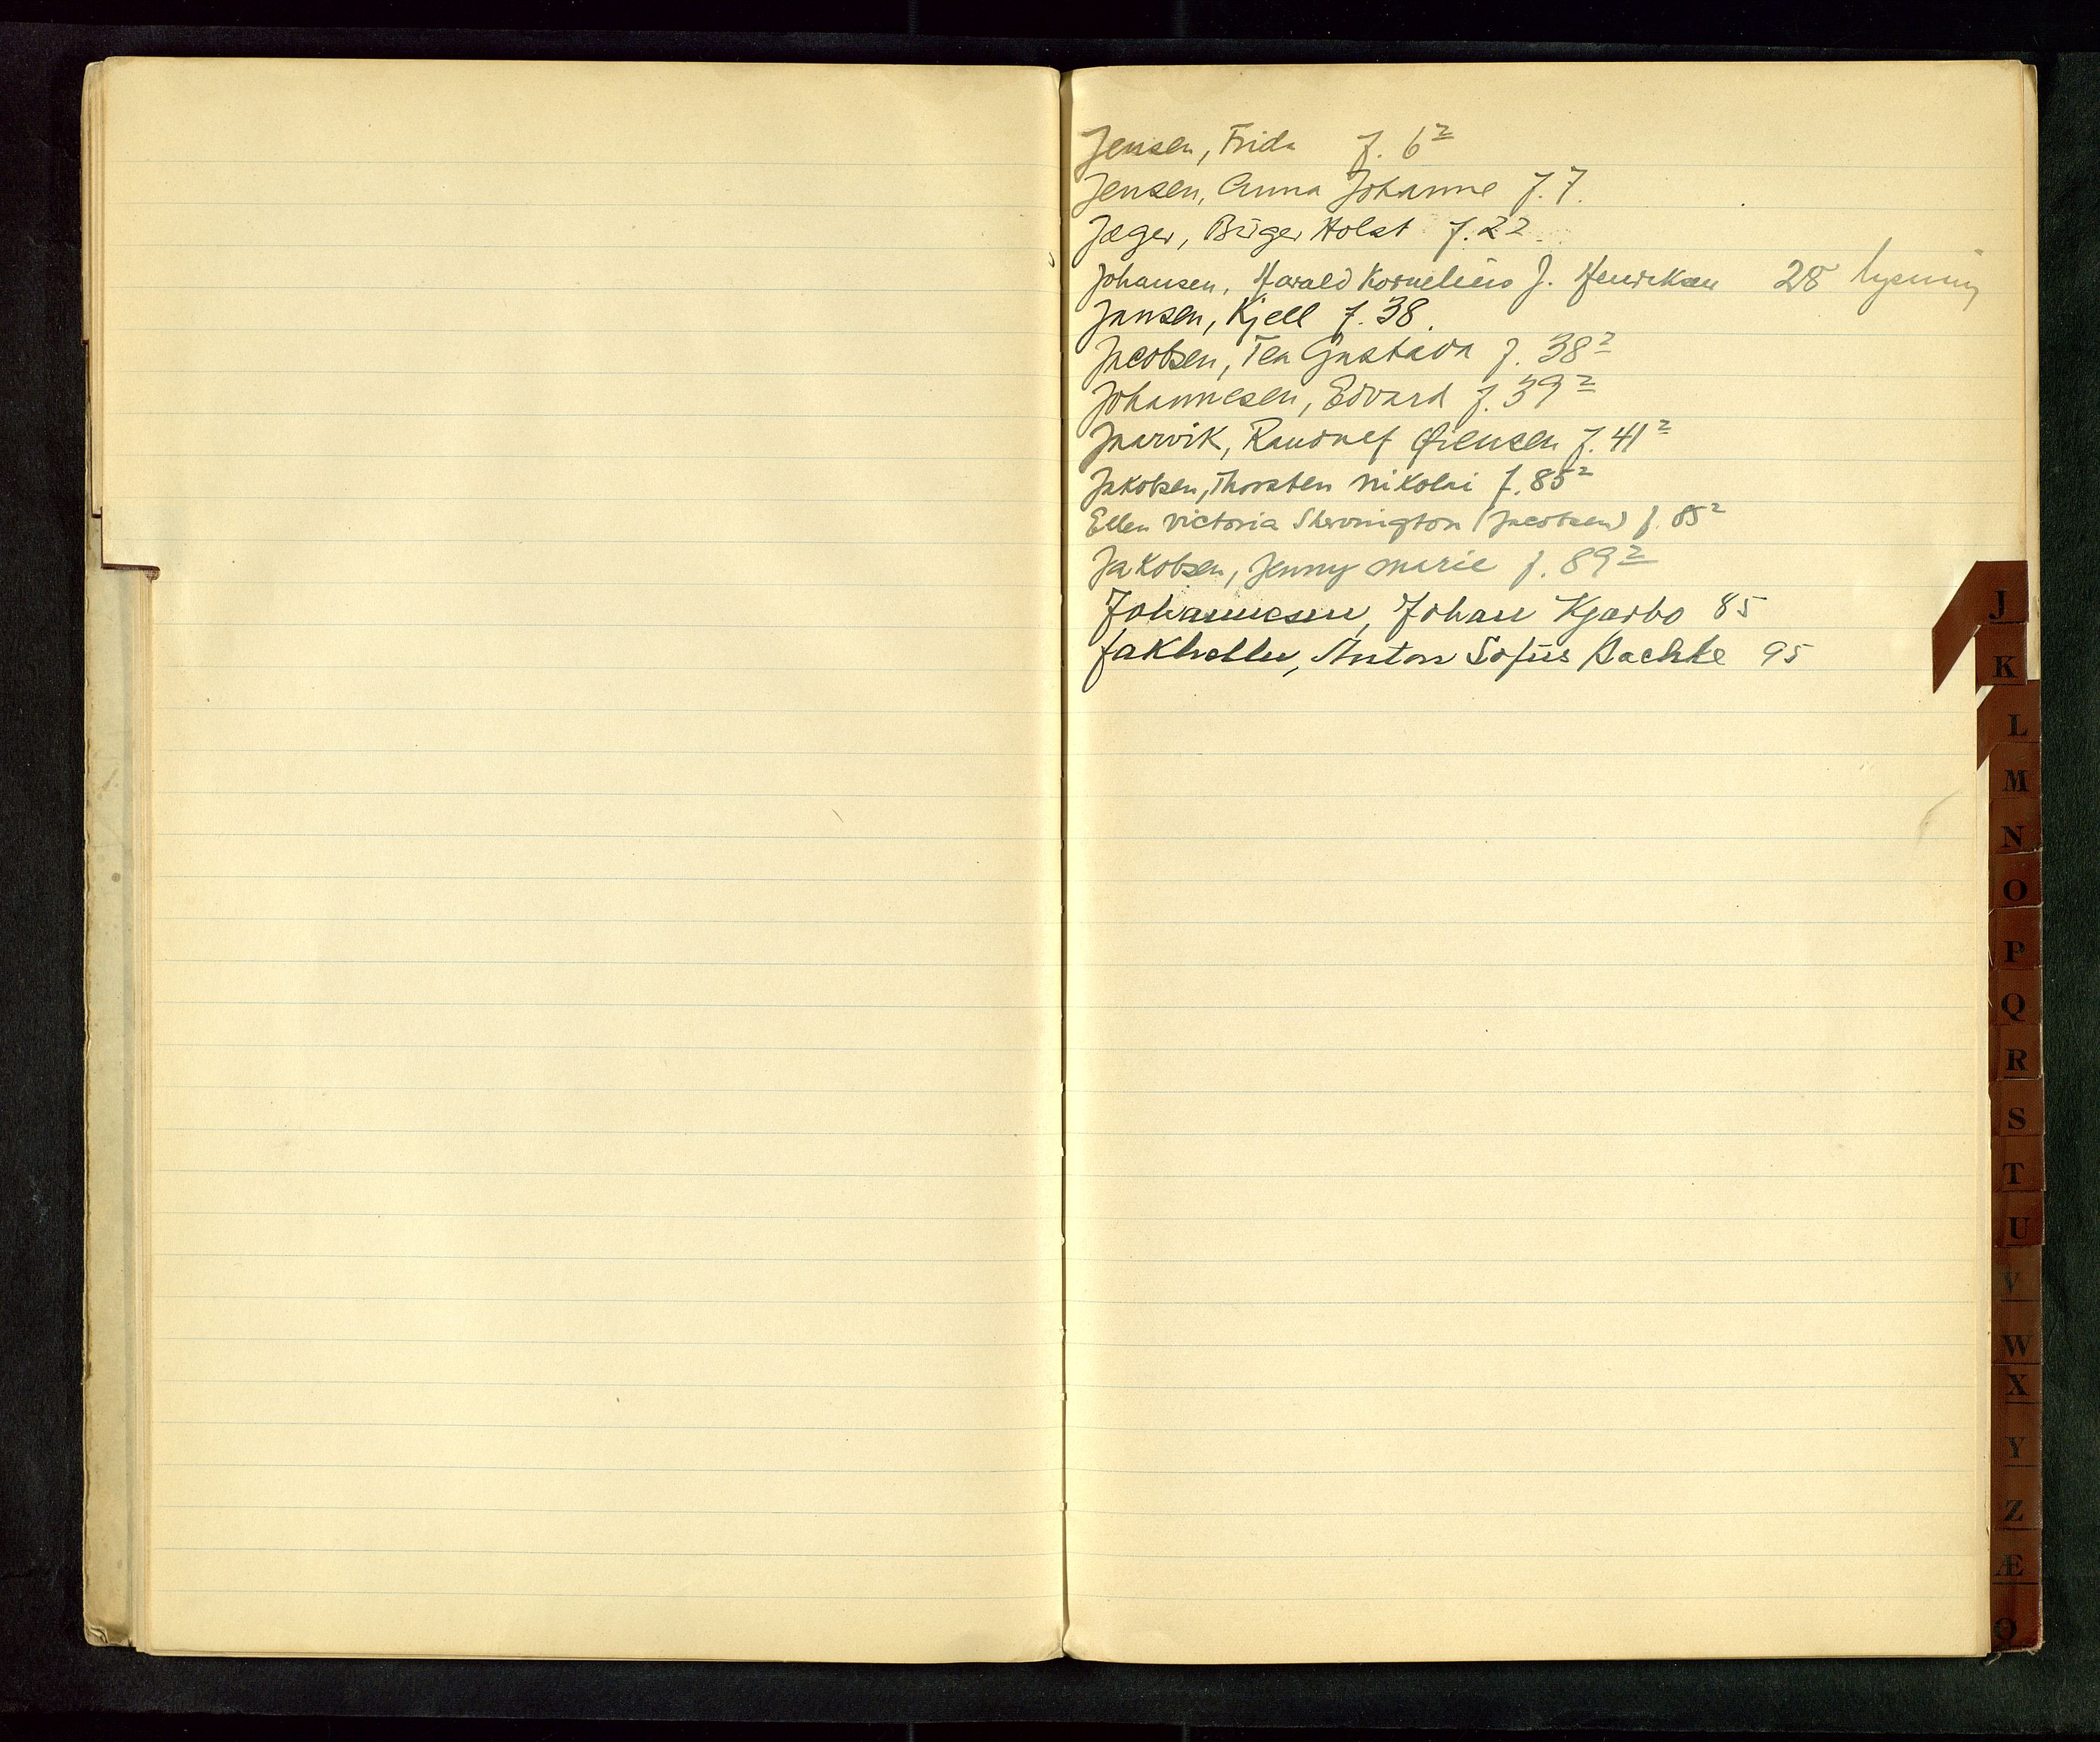 Jensen, Frida f. 6²
Jensen, Anna Johanne f. 7.
Jæger, Birger Holst f. 22
Johansen, Harald Kornelius J. Henriksen 28 lysning
Jansen, Kjell f. 38.
Jacobsen, Tea Gustava f. 38²
Johannesen, Edvard f. 39²
Jaarvik, Randulf Ørensen f. 41²
Jakobsen, Thorsten Nikolai f. 85²
Ellen Victoria Shervington (Jacobsen) f. 85²
Jakobsen, Jenny Marie f. 89²
Johannesen, Johan Kjarbo 85
Jakhelln, Anton Sofus Bachke 95
J
K
L
M
N
O
P
Q
R
S
T
U
V
W
X
Y
Z
Æ
Ø